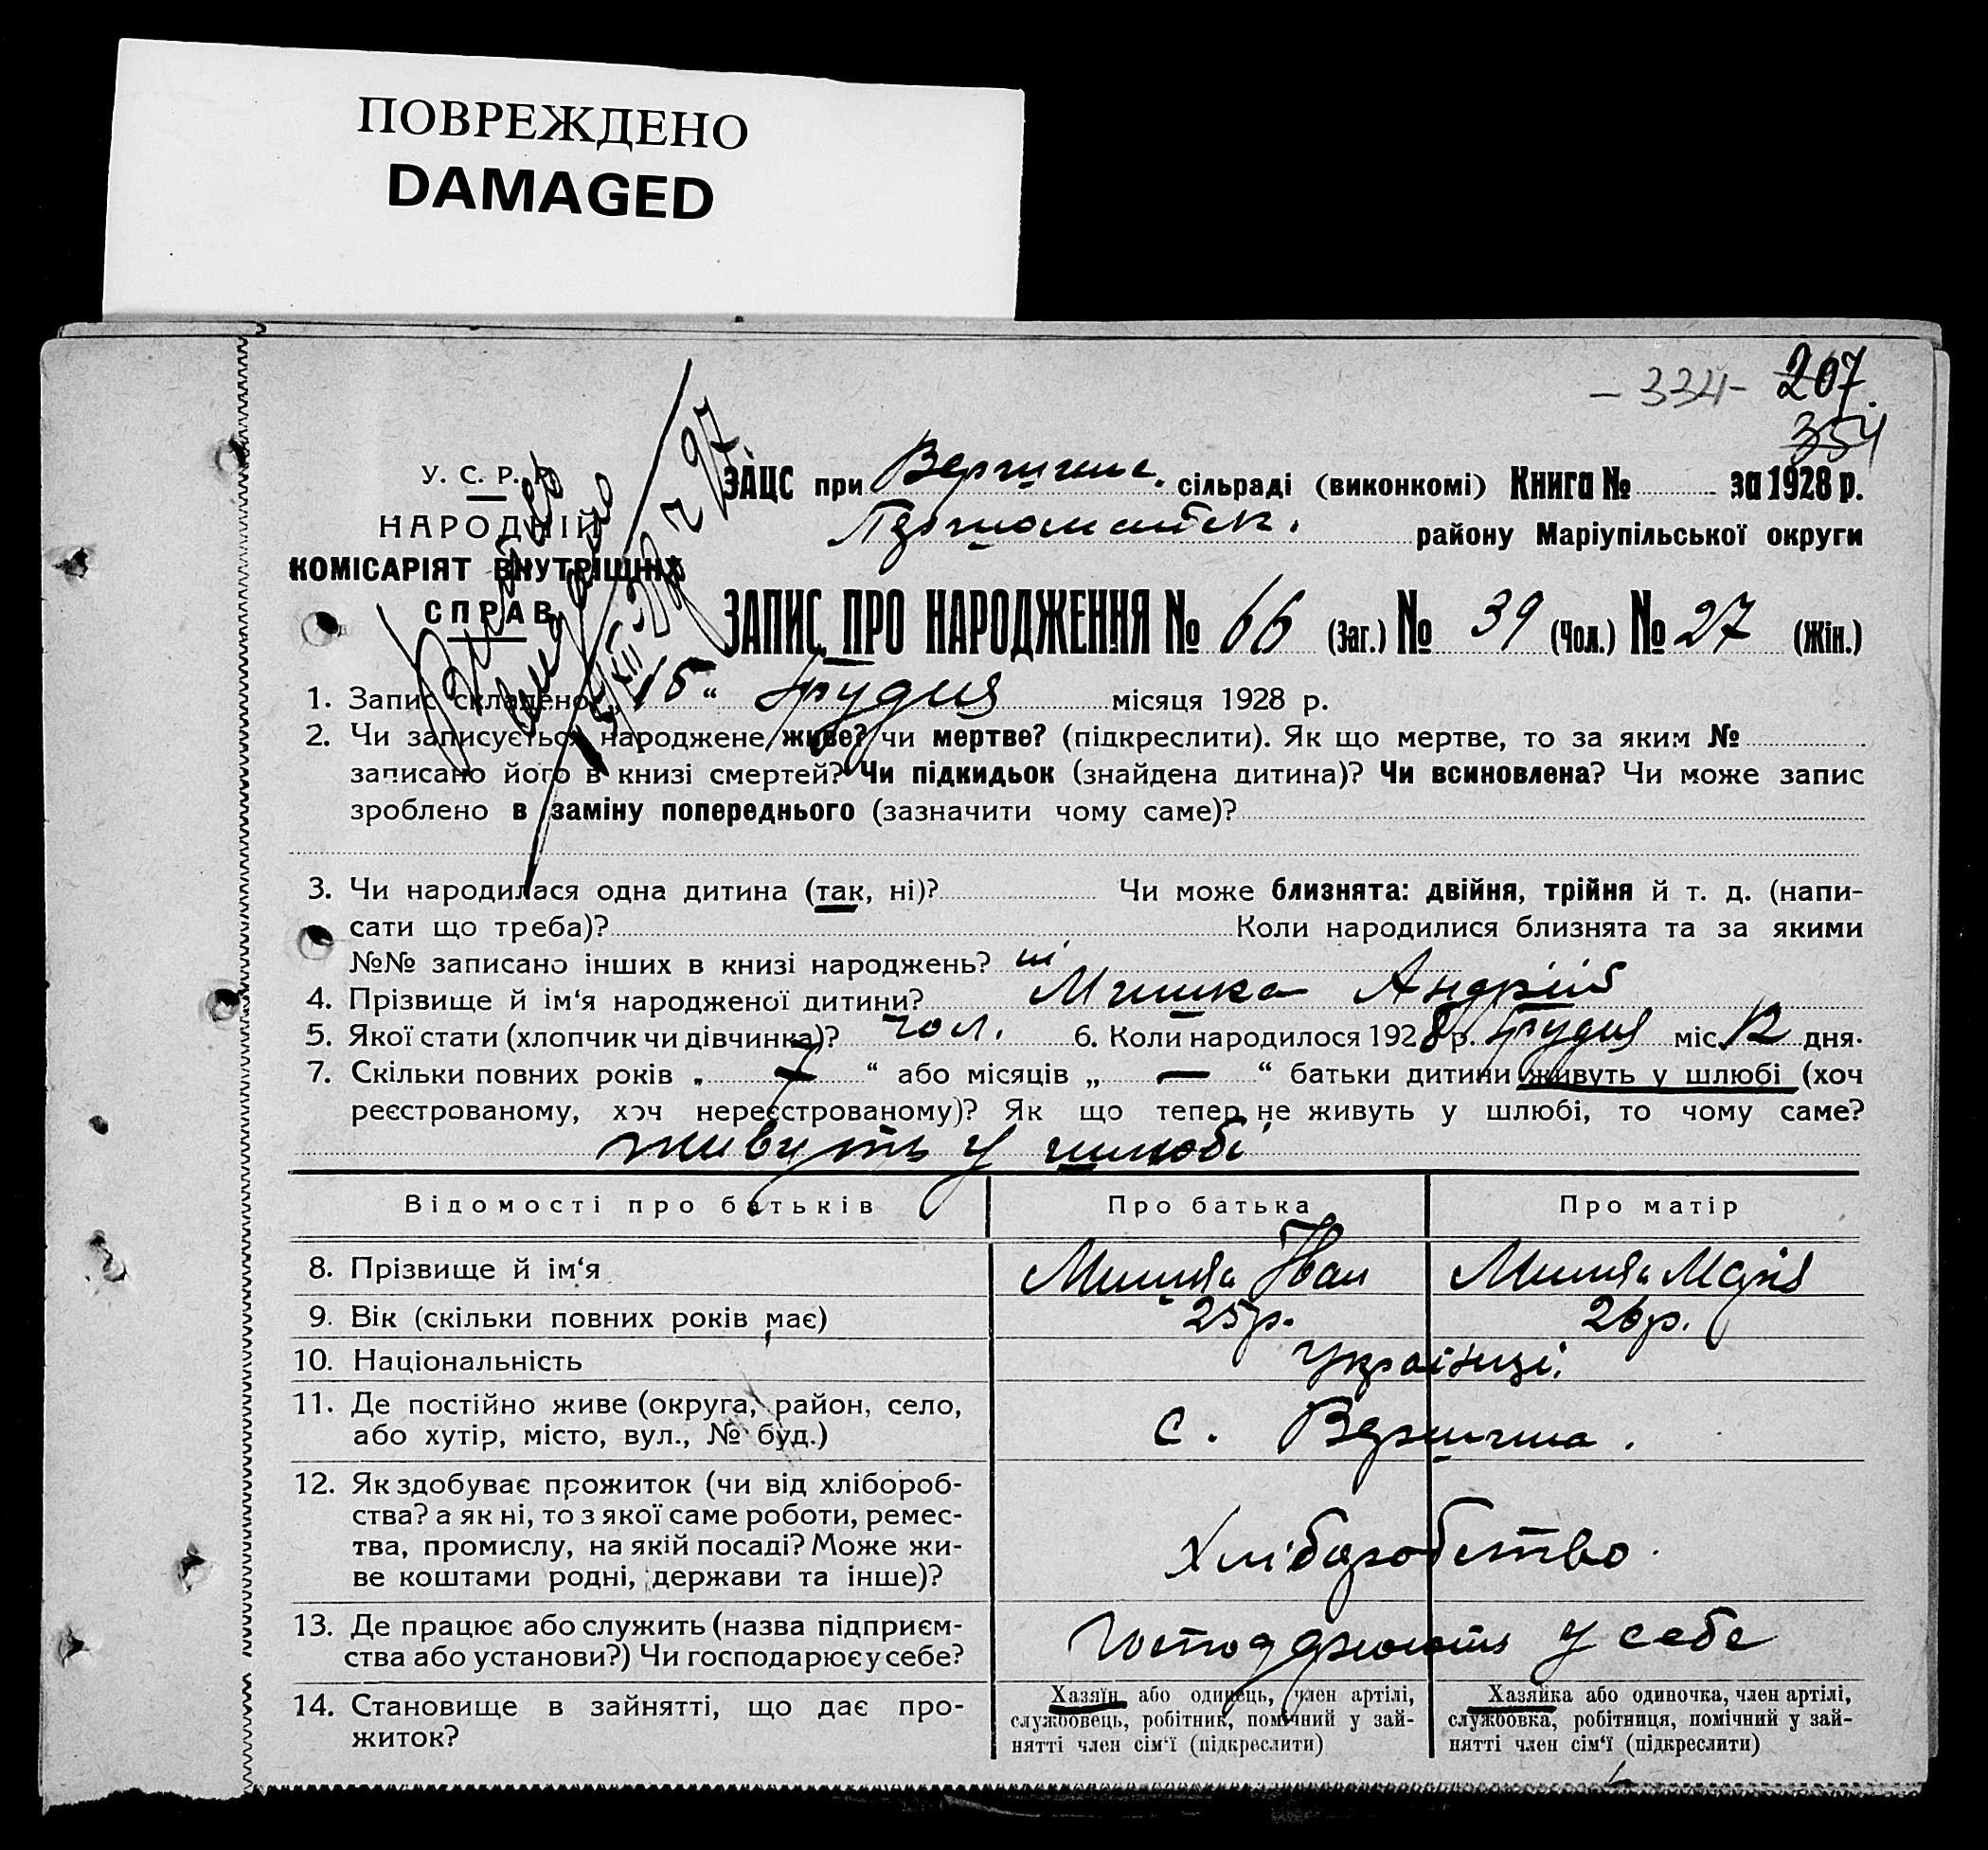 ПОВРЕЖДЕНО
DAMAGED
- 334 - 207.
354
У. С. Р. Р.
НАРОДНІЙ
КОМІСАРІЯТ ВНУТРІШНІХ
СПРАВ
ЗАЦС при сільраді (виконкомі) Книга № за 1928 р.
району Маріупільської округи
ЗАПИС ПРО НАРОДЖЕННЯ № 66 (Заг.) № 39 (Чол.) № 27 (Жін.)
1. Запис складено „ 15 “ грудня місяця 1928 р.
2. Чи записується народжене живе? чи мертве? (підкреслити). Як що мертве, то за яким №
записано його в книзі смертей? Чи підкидьок (знайдена дитина)? Чи всиновлена? Чи може запис
зроблено в заміну попереднього (зазначити чому саме)?
3. Чи народилася одна дитина (так, ні)? Чи може близнята: двійня, трійня й т. д. (напи-
сати що треба)? Коли народилися близнята та за якими
№№ записано інших в книзі народжень? ні
4. Прізвище й ім‘я народженої дитини? Андрій
5. Якої стати (хлопчик чи дівчинка)? чол. 6. Коли народилося 1928 р. грудня міс. 12 дня.
7. Скільки повних років „ 7 “ або місяців „ — “ батьки дитини живуть у шлюбі (хоч
реєстрованому, хоч нереєстрованому)? Як що тепер не живуть у шлюбі, то чому саме?
живуть у шлюбі
Відомості про батьків Про батька Про матір
8. Прізвище й ім‘я Іван Марія
9. Вік (скільки повних років має) 25 р. 26 р.
10. Національність Українці.
11. Де постійно живе (округа, район, село,
або хутір, місто, вул., № буд.) с. Вершина.
12. Як здобуває прожиток (чи від хлібороб-
ства? а як ні, то з якої саме роботи, ремес-
тва, промислу, на якій посаді? Може жи-
ве коштами родні, держави та інше)? Хліборобство.
13. Де працює або служить (назва підприєм-
ства або установи?) Чи господарює у себе? господарюють у себе
14. Становище в зайнятті, що дає про-
житок?
Хазяїн або одинець, член артілі,
службовець, робітник, помічний у зай-
нятті член сім‘ї (підкреслити)
Хазяйка або одиночка, член артілі,
службовка, робітниця, помічний у зай-
нятті член сім‘ї (підкреслити)